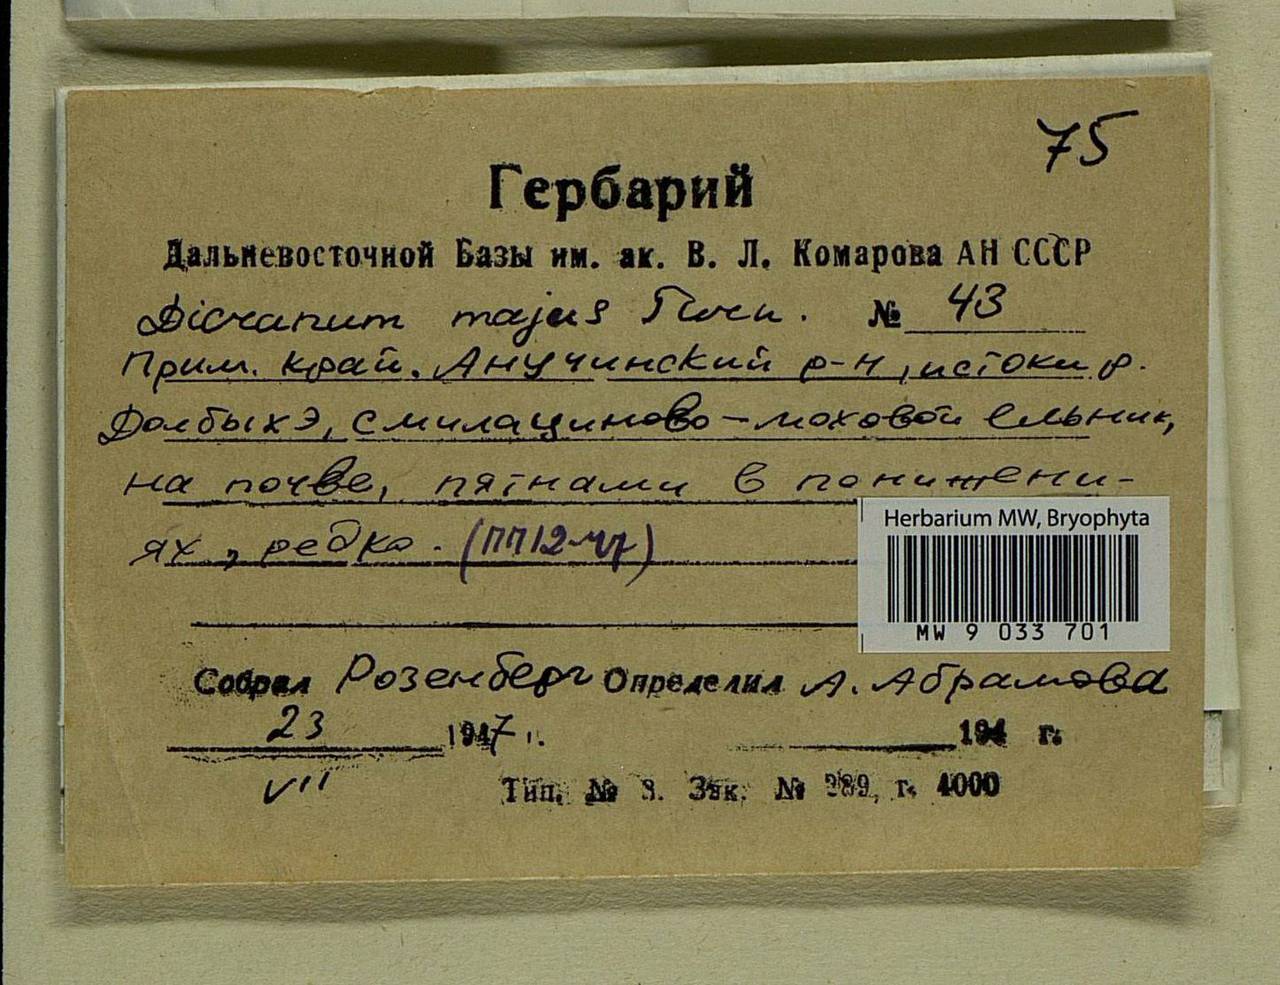 75
Гербарий
Дальневосточной Базы им. ак. В. Л. Комарова АН СССР
Dicranum majus Turn. № 43
Прим. край. Анучинский р-н, истоки р.
Даубыхэ, смилациново-моховой ельник,
на почве, пятнами в понижени-
ях, редко. (ПП12-47)
Herbarium MW, Bryophyta
MW 9 033 701
Собрал Розенберг Определил А. Абрамова
23 1947 г. 194 г.
VII
Тип. № 3. Зак. № 989, г. 4000